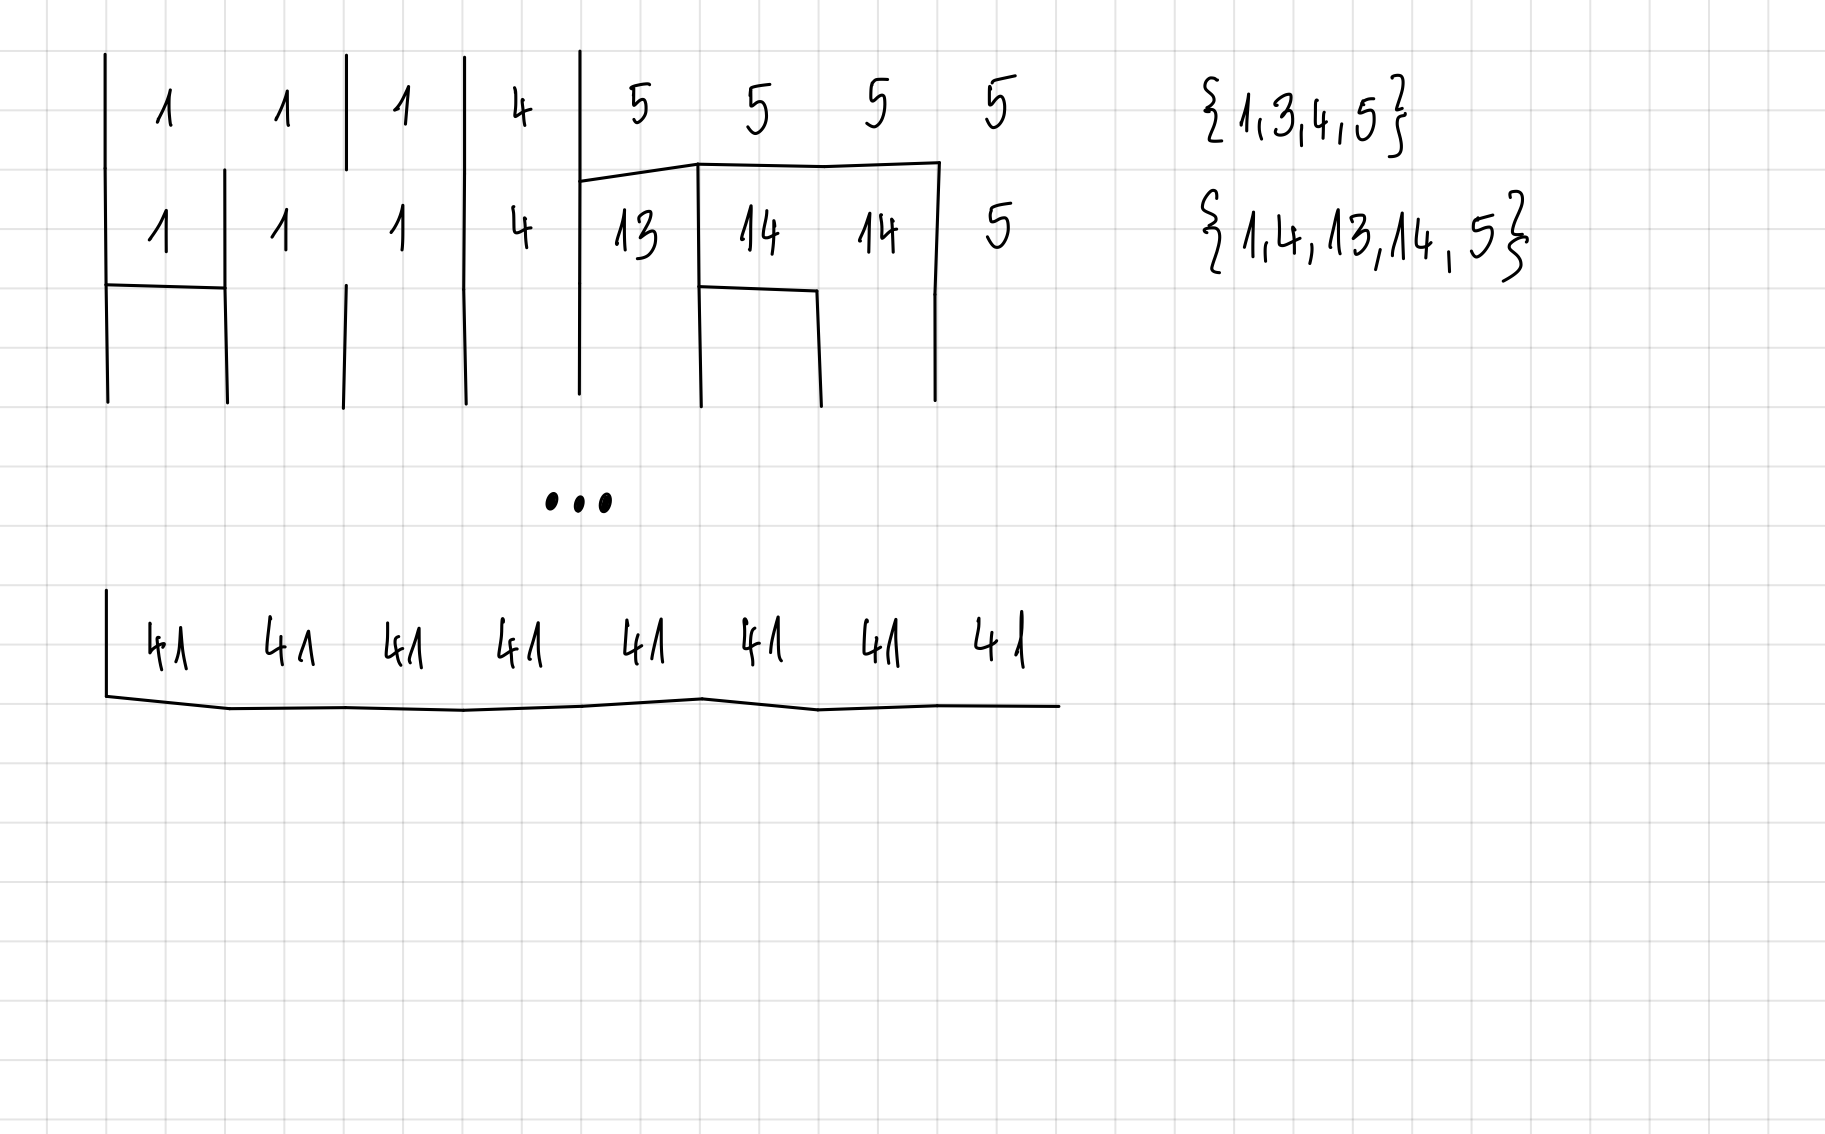 1 1 1 4 5 5 5 5 {1,3,4,5}
1 1 1 4 13 14 14 5 {1,4,13,14,5}
...
41 41 41 41 41 41 41 41